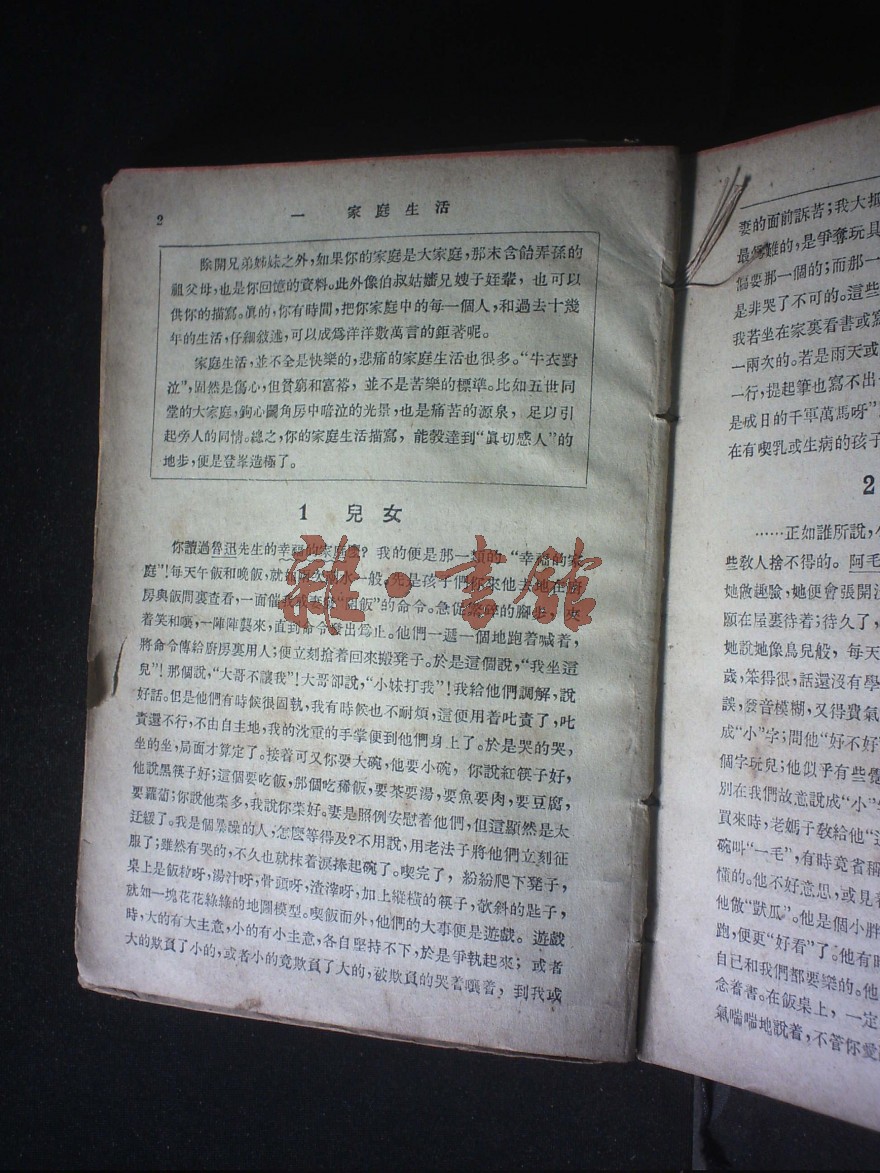 2
一 家庭生活
除開兄弟姊妹之外,如果你的家庭是大家庭,那末含飴弄孫的
祖父母,也是你回憶的資料。此外像伯叔姑嬸兄嫂子姪輩,也可以
供你的描寫。眞的,你有時間,把你家庭中的每一個人,和過去十幾
年的生活,仔細敘述,可以成爲洋洋數萬言的鉅著呢。
家庭生活,並不全是快樂的,悲痛的家庭生活也很多。“牛衣對
泣”,固然是傷心,但貧窮和富裕,並不是苦樂的標準。比如五世同
堂的大家庭,鉤心鬭角房中喑泣的光景,也是痛苦的源泉,足以引
起旁人的同情。總之,你的家庭生活描寫,能彀達到“眞切感人”的
地步,便是登峯造極了。
1 兒女
你讀過魯迅先生的幸福的家庭麼?我的便是那一類的“幸福的家
庭”!每天午飯和晚飯,就如水一般。先是孩子們你來他去地在廚
房與飯間裏查看,一面催我或的命令。急促的脚步,夾
着笑和嚷,一陣陣襲來,直到命令發出爲止。他們一遞一個地跑着喊着,
將命令傳給廚房裏用人;便立刻搶着回來搬凳子。於是這個說,“我坐這
兒”!那個說,“大哥不讓我”!大哥卻說,“小妹打我”!我給他們調解,說
好話。但是他們有時候很固執,我有時候也不耐煩,這便用着叱責了,叱
責還不行,不由自主地,我的沈重的手掌便到他們身上了。於是哭的哭,
坐的坐,局面才算定了。接着可又你要大碗,他要小碗,你說紅筷子好,
他說黑筷子好;這個要吃飯,那個吃稀飯,要茶要湯,要魚要肉,要豆腐,
要蘿蔔;你說他菜多,我說你菜好。妻是照例安慰着他們,但這顯然是太
迂緩了。我是個暴躁的人;怎麽等得及?不用說,用老法子將他們立刻征
服了;雖然有哭的,不久也就抹着淚捧起碗了。喫完了,紛紛爬下凳子,
桌上是飯粒呀,湯汁呀,骨頭呀,渣滓呀,加上縱橫的筷子,欹斜的匙子,
就如一塊花花綠綠的地圖模型。喫飯而外,他們的大事便是遊戲。遊戲
時,大的有大主意,小的有小主意,各自堅持不下,於是爭執起來;或者
大的欺負了小的,或者小的竟欺負了大的,被欺負的哭着嚷着,到我或
妻的面前訴苦;我大抵
最爲難的,是爭奪玩具
偏要那一個的;而那一
是非哭了不可的。這些
我若坐在家裏看書或寫
一兩次的。若是雨天或
一行,提起筆也寫不出一
是成日的千軍萬馬呀”
在有喫乳或生病的孩子
2
……正如誰所說,小
些敎人捨不得的。阿毛
她做趣驗,她便會張開
願在屋裏待着;待久了,
她說她像鳥兒般,每天
歲,笨得很,話還沒有學
誤,發音模糊,又得費氣
成“小”字;問他“好不好”
個字玩兒;他似乎有些覺
別在我們故意說成“小”
買來時,老媽子敎給他“這
碗叫“一毛”,有時竟省稱
懂的。他不好意思,或見着
他做“獃瓜”。他是個小胖
跑,便更“好看”了。他有時
自己和我們都要樂的。他
念着書。在飯桌上,一定
氣喘喘地說着,不管你愛
雜·書館